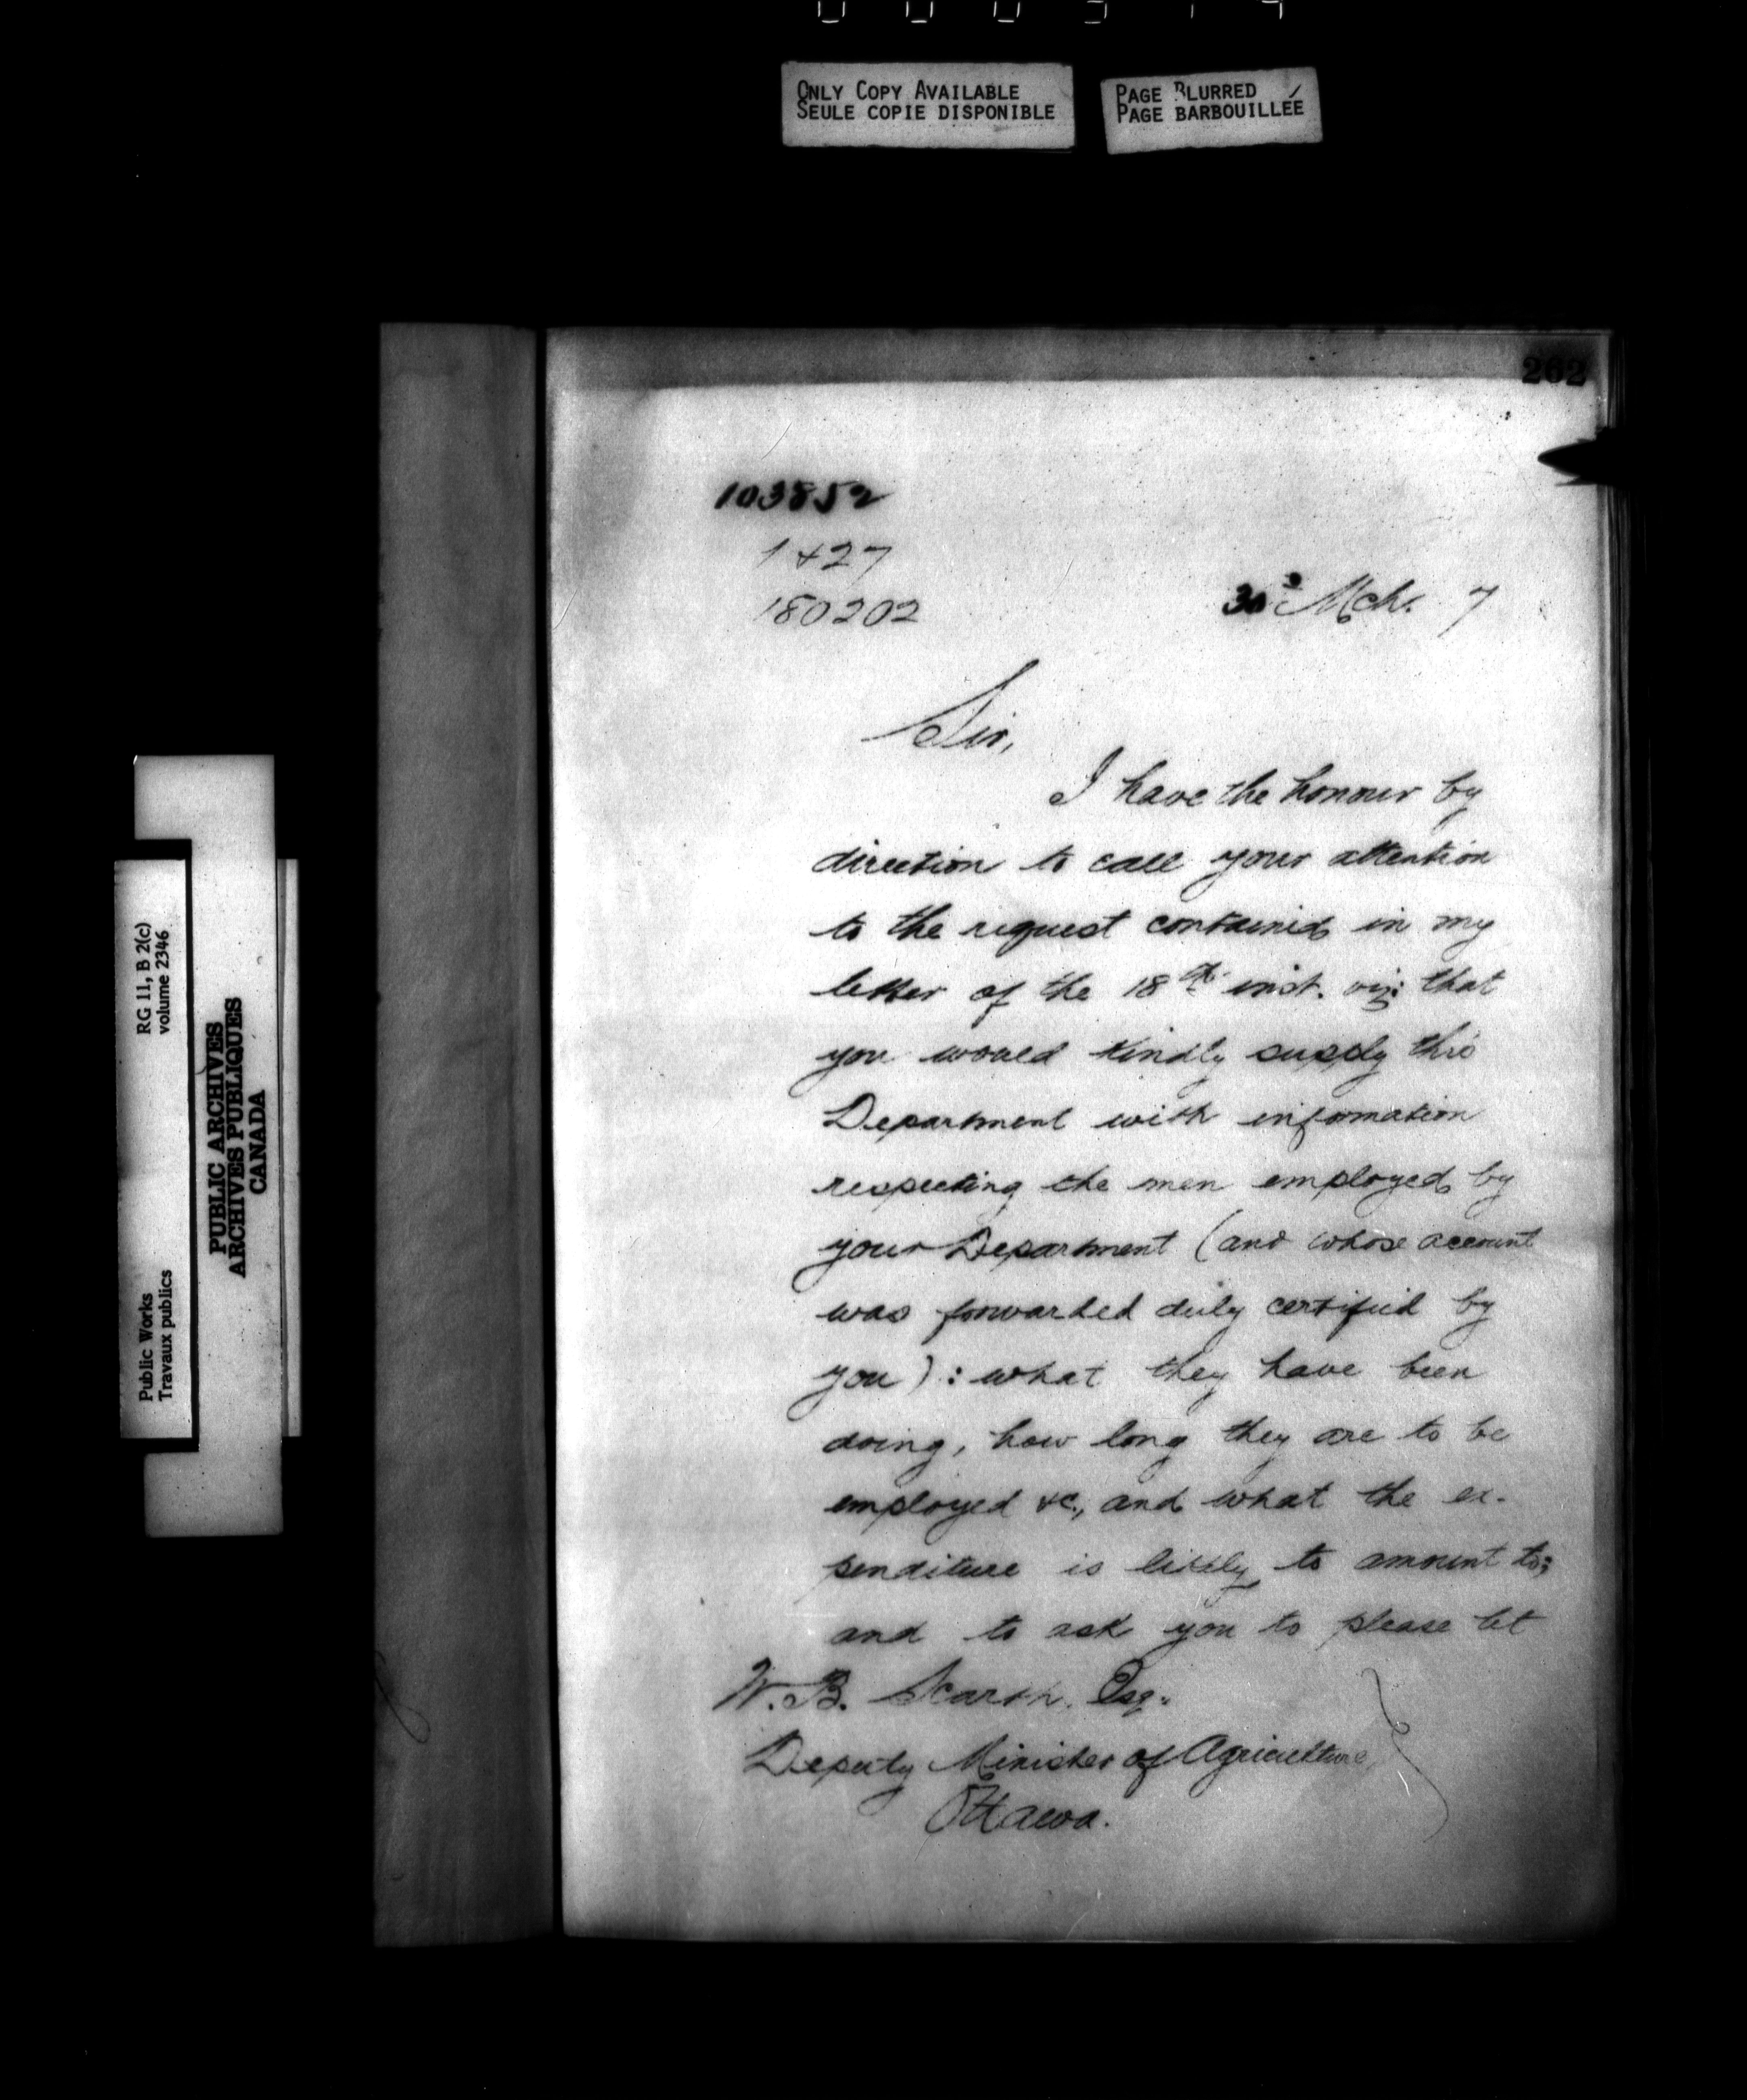 ONLY COPY AVAILABLE
SEULE COPIE DISPONIBLE
PAGE BLURRED
PAGE BARBOUILLÉE
262
103852
1427
180202
30 Mch. 7
Sir,
I have the honour by
direction to call your attention
to the request contained in my
letter of the 18th inst. viz: that
you would kindly supply this
Department with information
respecting the men employed by
your Department (and whose account
was forwarded duly certified by
you): what they have been
doing, how long they are to be
employed &c., and what the ex-
penditure is likely to amount to;
and to ask you to please let
W. B. Scarth, Esq.
Deputy Minister of Agriculture,
Ottawa.
RG 11, B 2(c)
volume 2346
Public Works
Travaux publics
PUBLIC ARCHIVES
ARCHIVES PUBLIQUES
CANADA